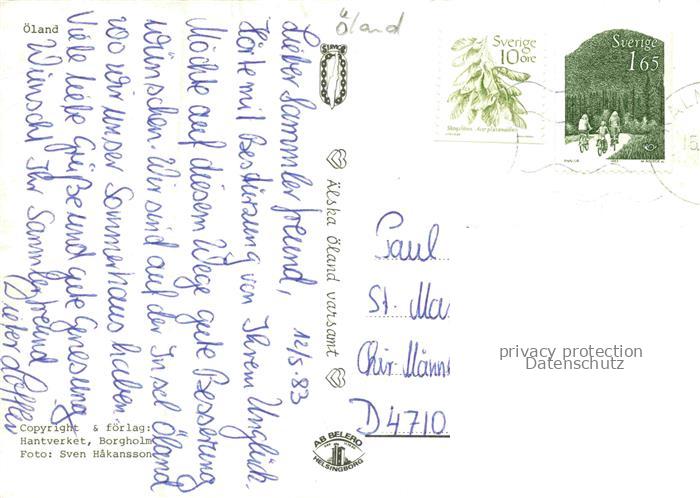 Öland
Öland
Lieber Sammlerfreund, 12/5.83
Hörte mit Bestürzung von Ihrem Unglück.
Möchte auf diesem Wege gute Besserung
wünschen. Wir sind auf der Insel Öland
wo wir unser Sommerhaus haben.
Viele liebe Grüße und gute Genesung
Wünscht Ihr Sammlerfreund
Dieter
Älska Öland varsamt
Sverige
10 öre
Sverige
1 65
Paul
St. Ma
Chir. Männ
D 4710
privacy protection
Datenschutz
AB BELERO
HELSINGBORG
Copyright & förlag:
Hantverket, Borgholm
Foto: Sven Håkansson